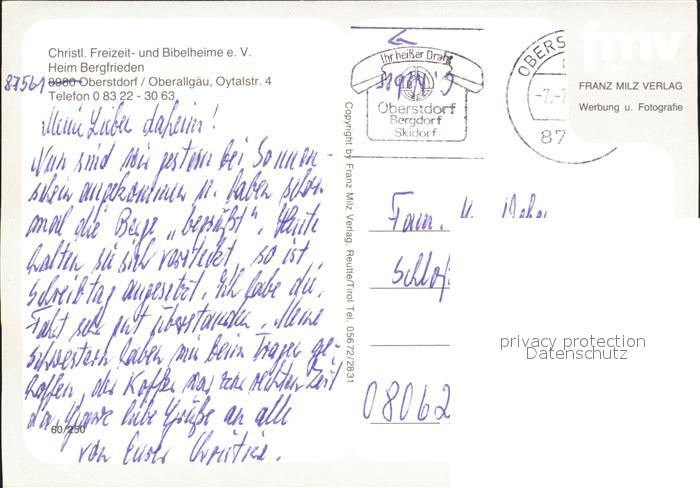 Christl. Freizeit- und Bibelheime e. V.
Heim Bergfrieden
87561 8980 Oberstdorf / Oberallgäu, Oytalstr. 4
Telefon 0 83 22 - 30 63
Meine Lieben daheim!
Nun sind wir gestern bei Sonnen-
schein angekommen u. haben schon
mal die Berge „begrüßt". Heute
halten sie sich versteckt, so ist
Schreibtag angesetzt. Ich habe die
Fahrt sehr gut überstanden. Meine
Schwestern haben mir beim Tragen ge-
holfen, der Koffer war zur rechten Zeit
da. Ganz liebe Grüße an alle
von Eurer Christine.
60/250
Copyright by Franz Milz Verlag, Reutte/Tirol Tel. 05672/2831
Ihr heißer Draht
Oberstdorf
Bergdorf
Skidorf
OBERS
87
fmv
FRANZ MILZ VERLAG
Werbung u. Fotografie
Fam.
Schloß
08062
privacy protection
Datenschutz